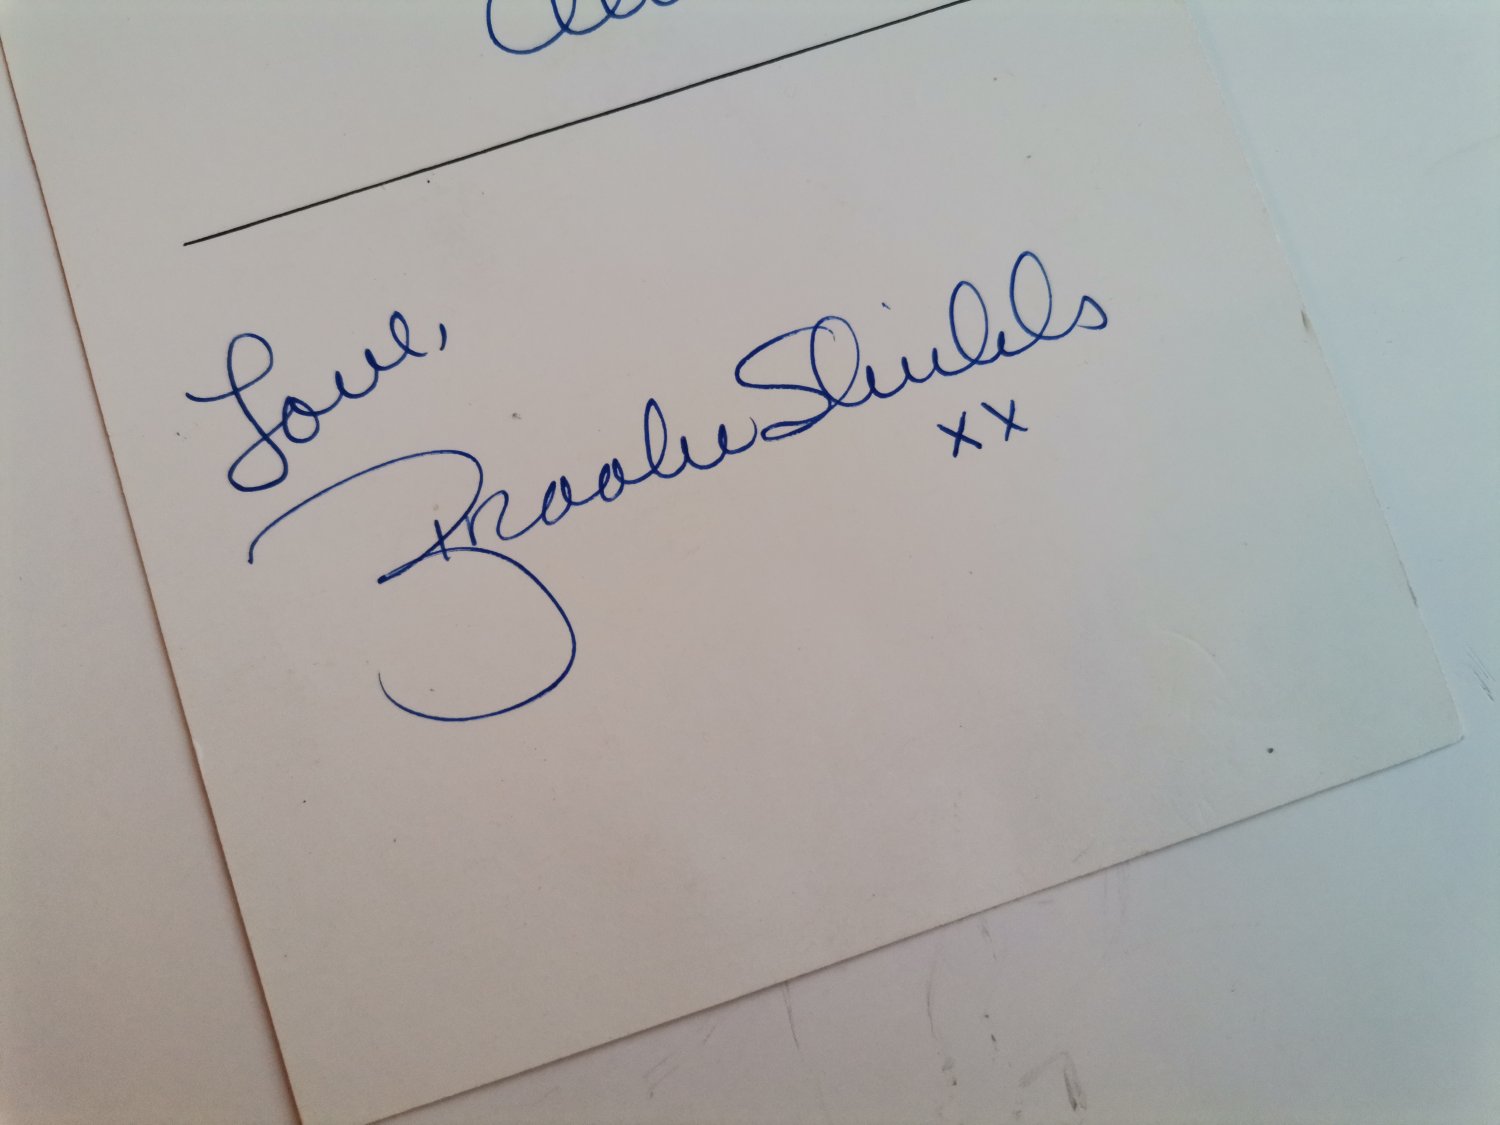 Love,
Brooke Shields
xx